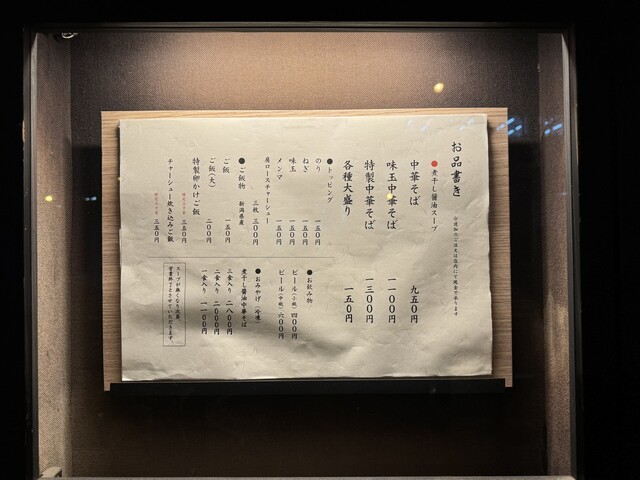 お品書き
●煮干し醤油スープ
中華そば 九五〇円
味玉中華そば 一一〇〇円
特製中華そば 一三〇〇円
各種大盛り 一五〇円
●トッピング
のり 一五〇円
ねぎ 一五〇円
味玉 一五〇円
メンマ 一五〇円
肩ロースチャーシュー
三枚 三〇〇円
●ご飯物 新潟県産
ご飯 一五〇円
ご飯(大) 二〇〇円
特製卵かけご飯 三五〇円
チャーシュー炊き込みご飯 三五〇円
●お飲み物
ビール(小瓶) 四〇〇円
ビール(中瓶) 六〇〇円
●おみやげ(冷凍)
煮干し醤油中華そば
三食入り 二八〇〇円
二食入り 二〇〇〇円
一食入り 一一〇〇円
スープが無くなり次第、
営業終了とさせていただきます。